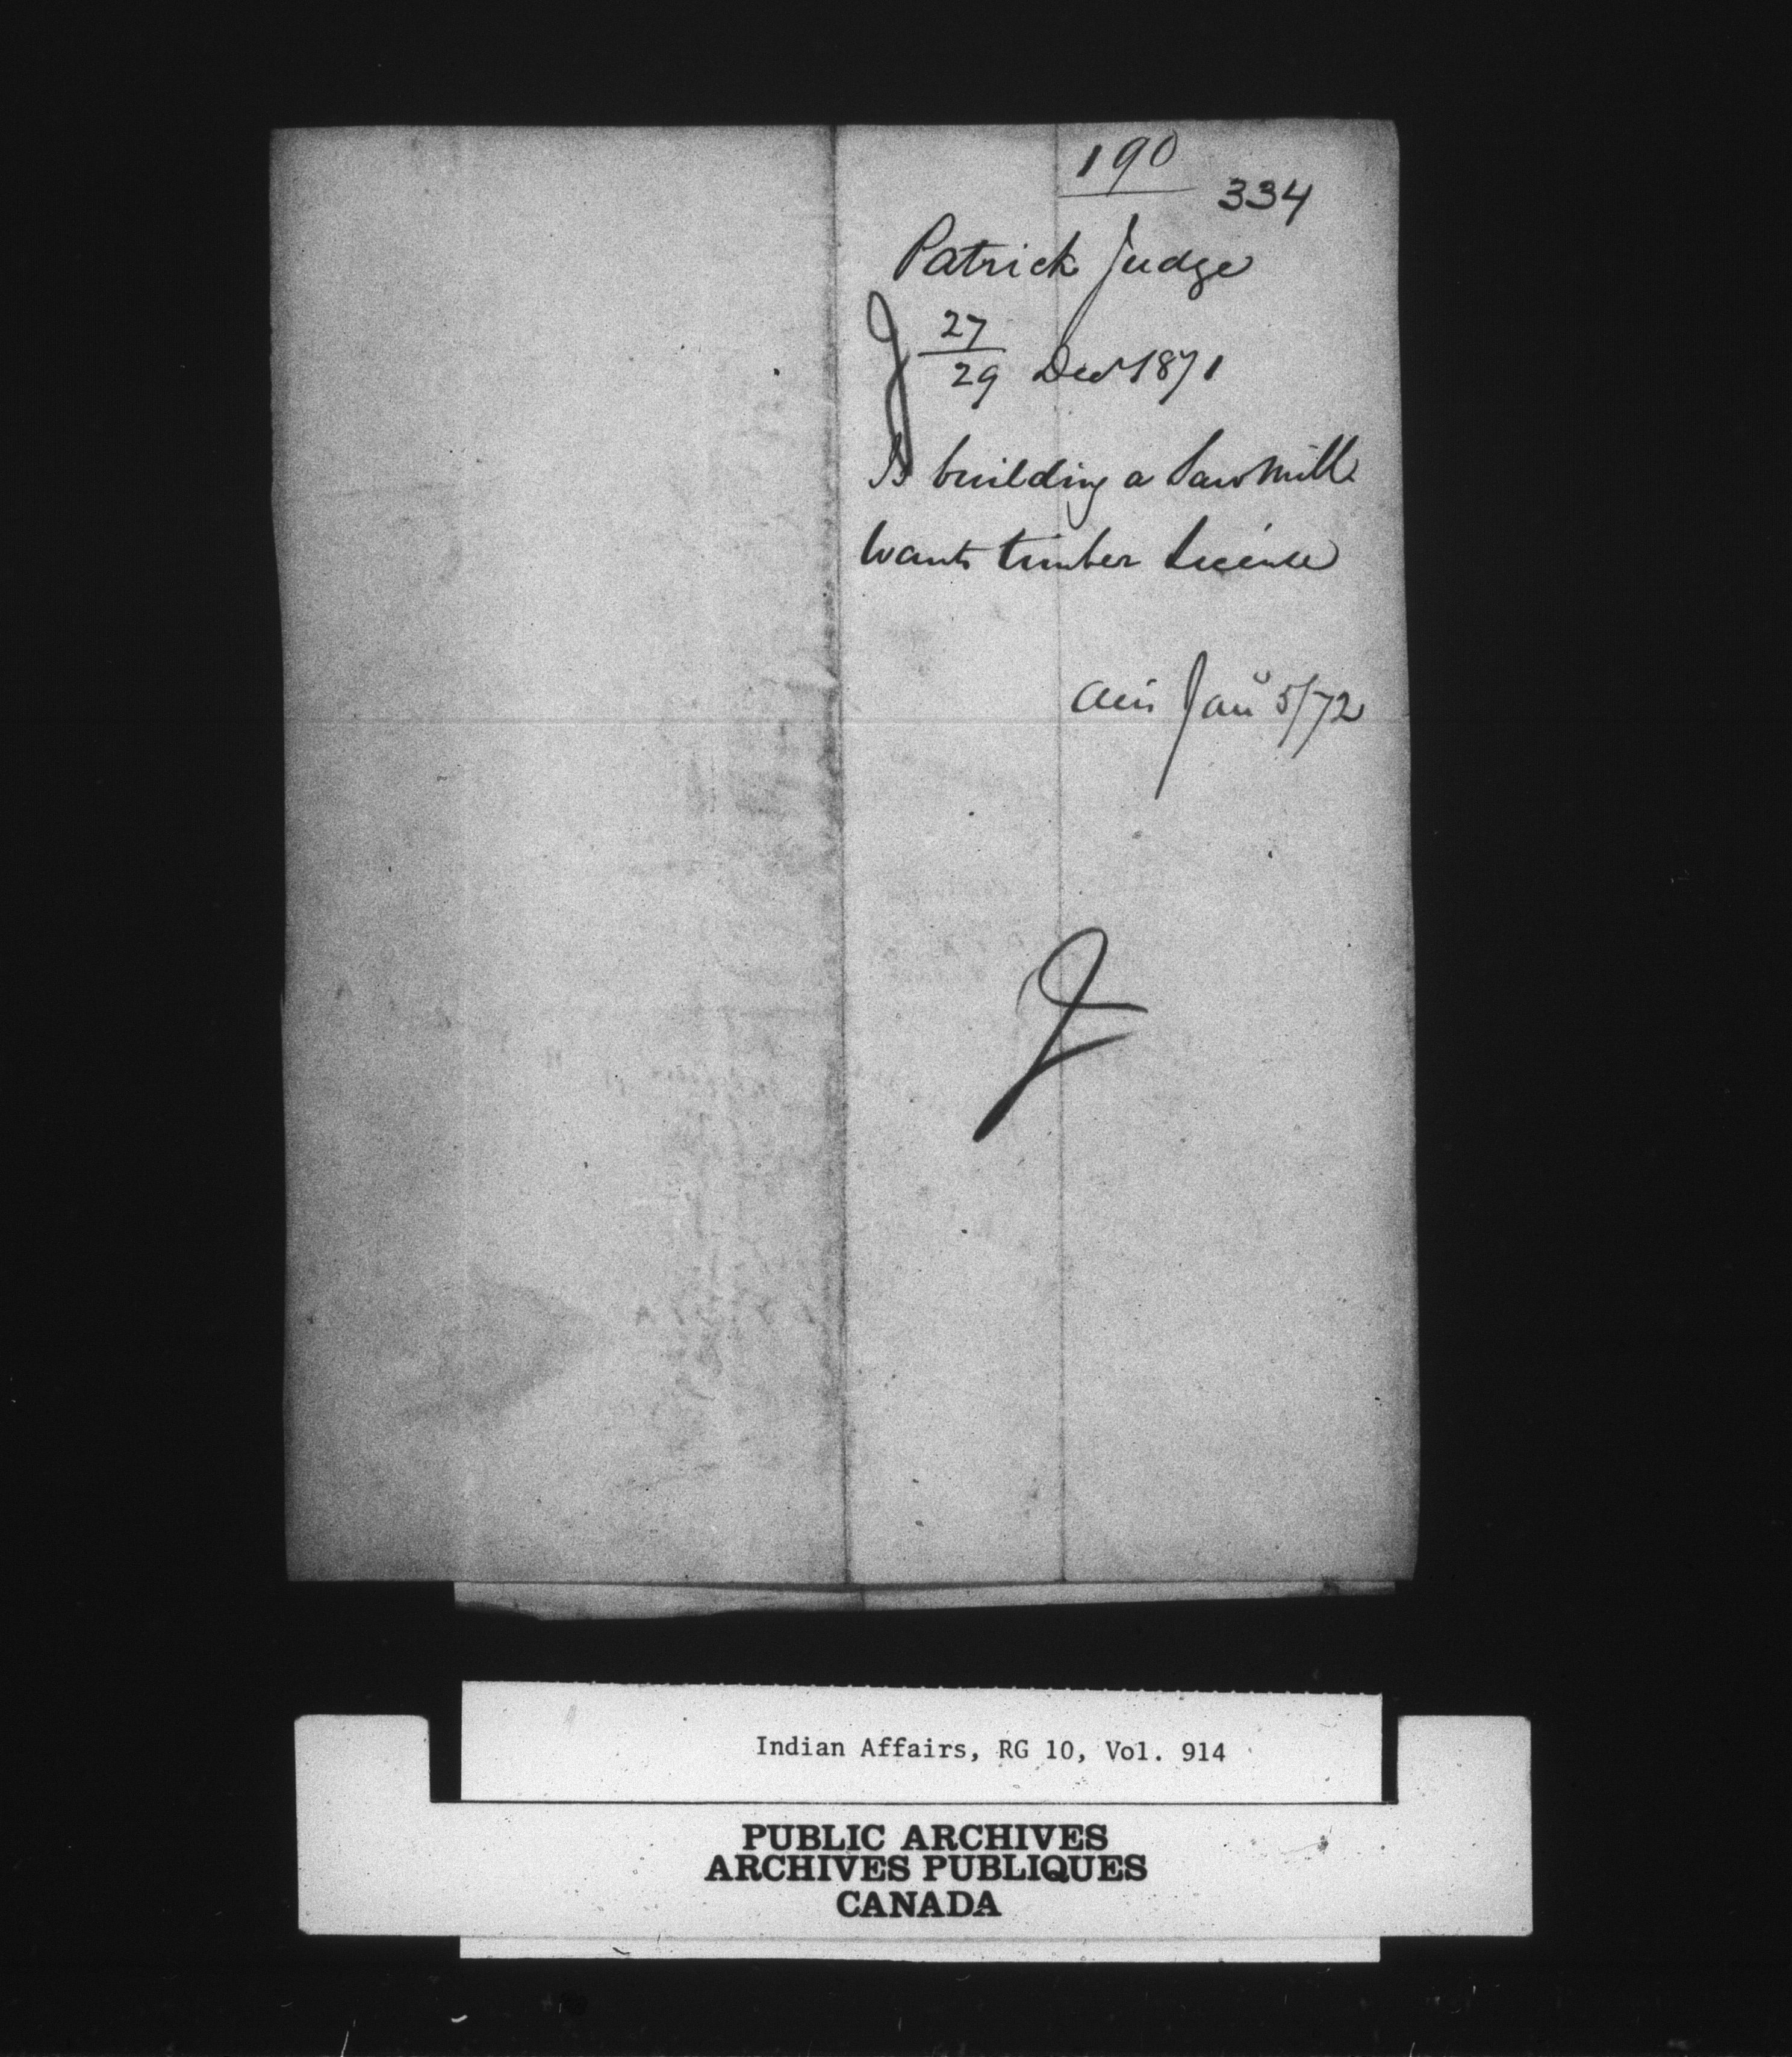 190
334
Patrick Judge
J 27/29 Decr 1871
Is building a Saw Mill
Wants timber License
Jany 5/72
J
Indian Affairs, RG 10, Vol. 914
PUBLIC ARCHIVES
ARCHIVES PUBLIQUES
CANADA